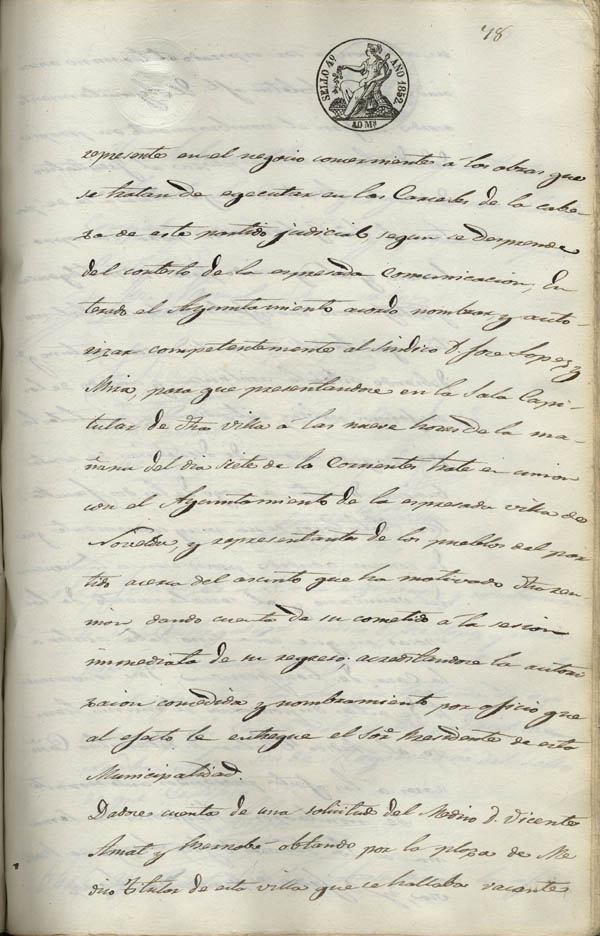 78
SELLO 4º AÑO 1852.
40 Ms.
represente en el negocio concerniente a las obras que
se tratan de egecutar en las Carceles de la cabe-
za de este partido judicial, segun se desprende
del contesto de la espresada comunicacion; En
terado el Ayuntamiento acordó nombrar y auto-
rizar competentemente al Sindico D. Jose Lopez y
Mira, para que presentandose en la Sala Capi-
tular de dha villa a las nueve horas de la ma-
ñana del dia siete de los Corrientes trate en union
con el Ayuntamiento de la espresada villa de
Novelda, y representantes de los pueblos del par
tido, acerca del asunto que ha motivado dha reu
nion, dando cuenta de su cometido a la sesion
inmediata de su regreso; acreditandose la autori
zacion concedida y nombramiento por oficio que
al efecto le entregue el Sor Presidente de esta
Municipalidad.
Dadose cuenta de una solicitud del Medico D. Vicente
Amat y Bernabé obtando por la plaza de Me-
dico Titular de esta villa que se hallaba vacante